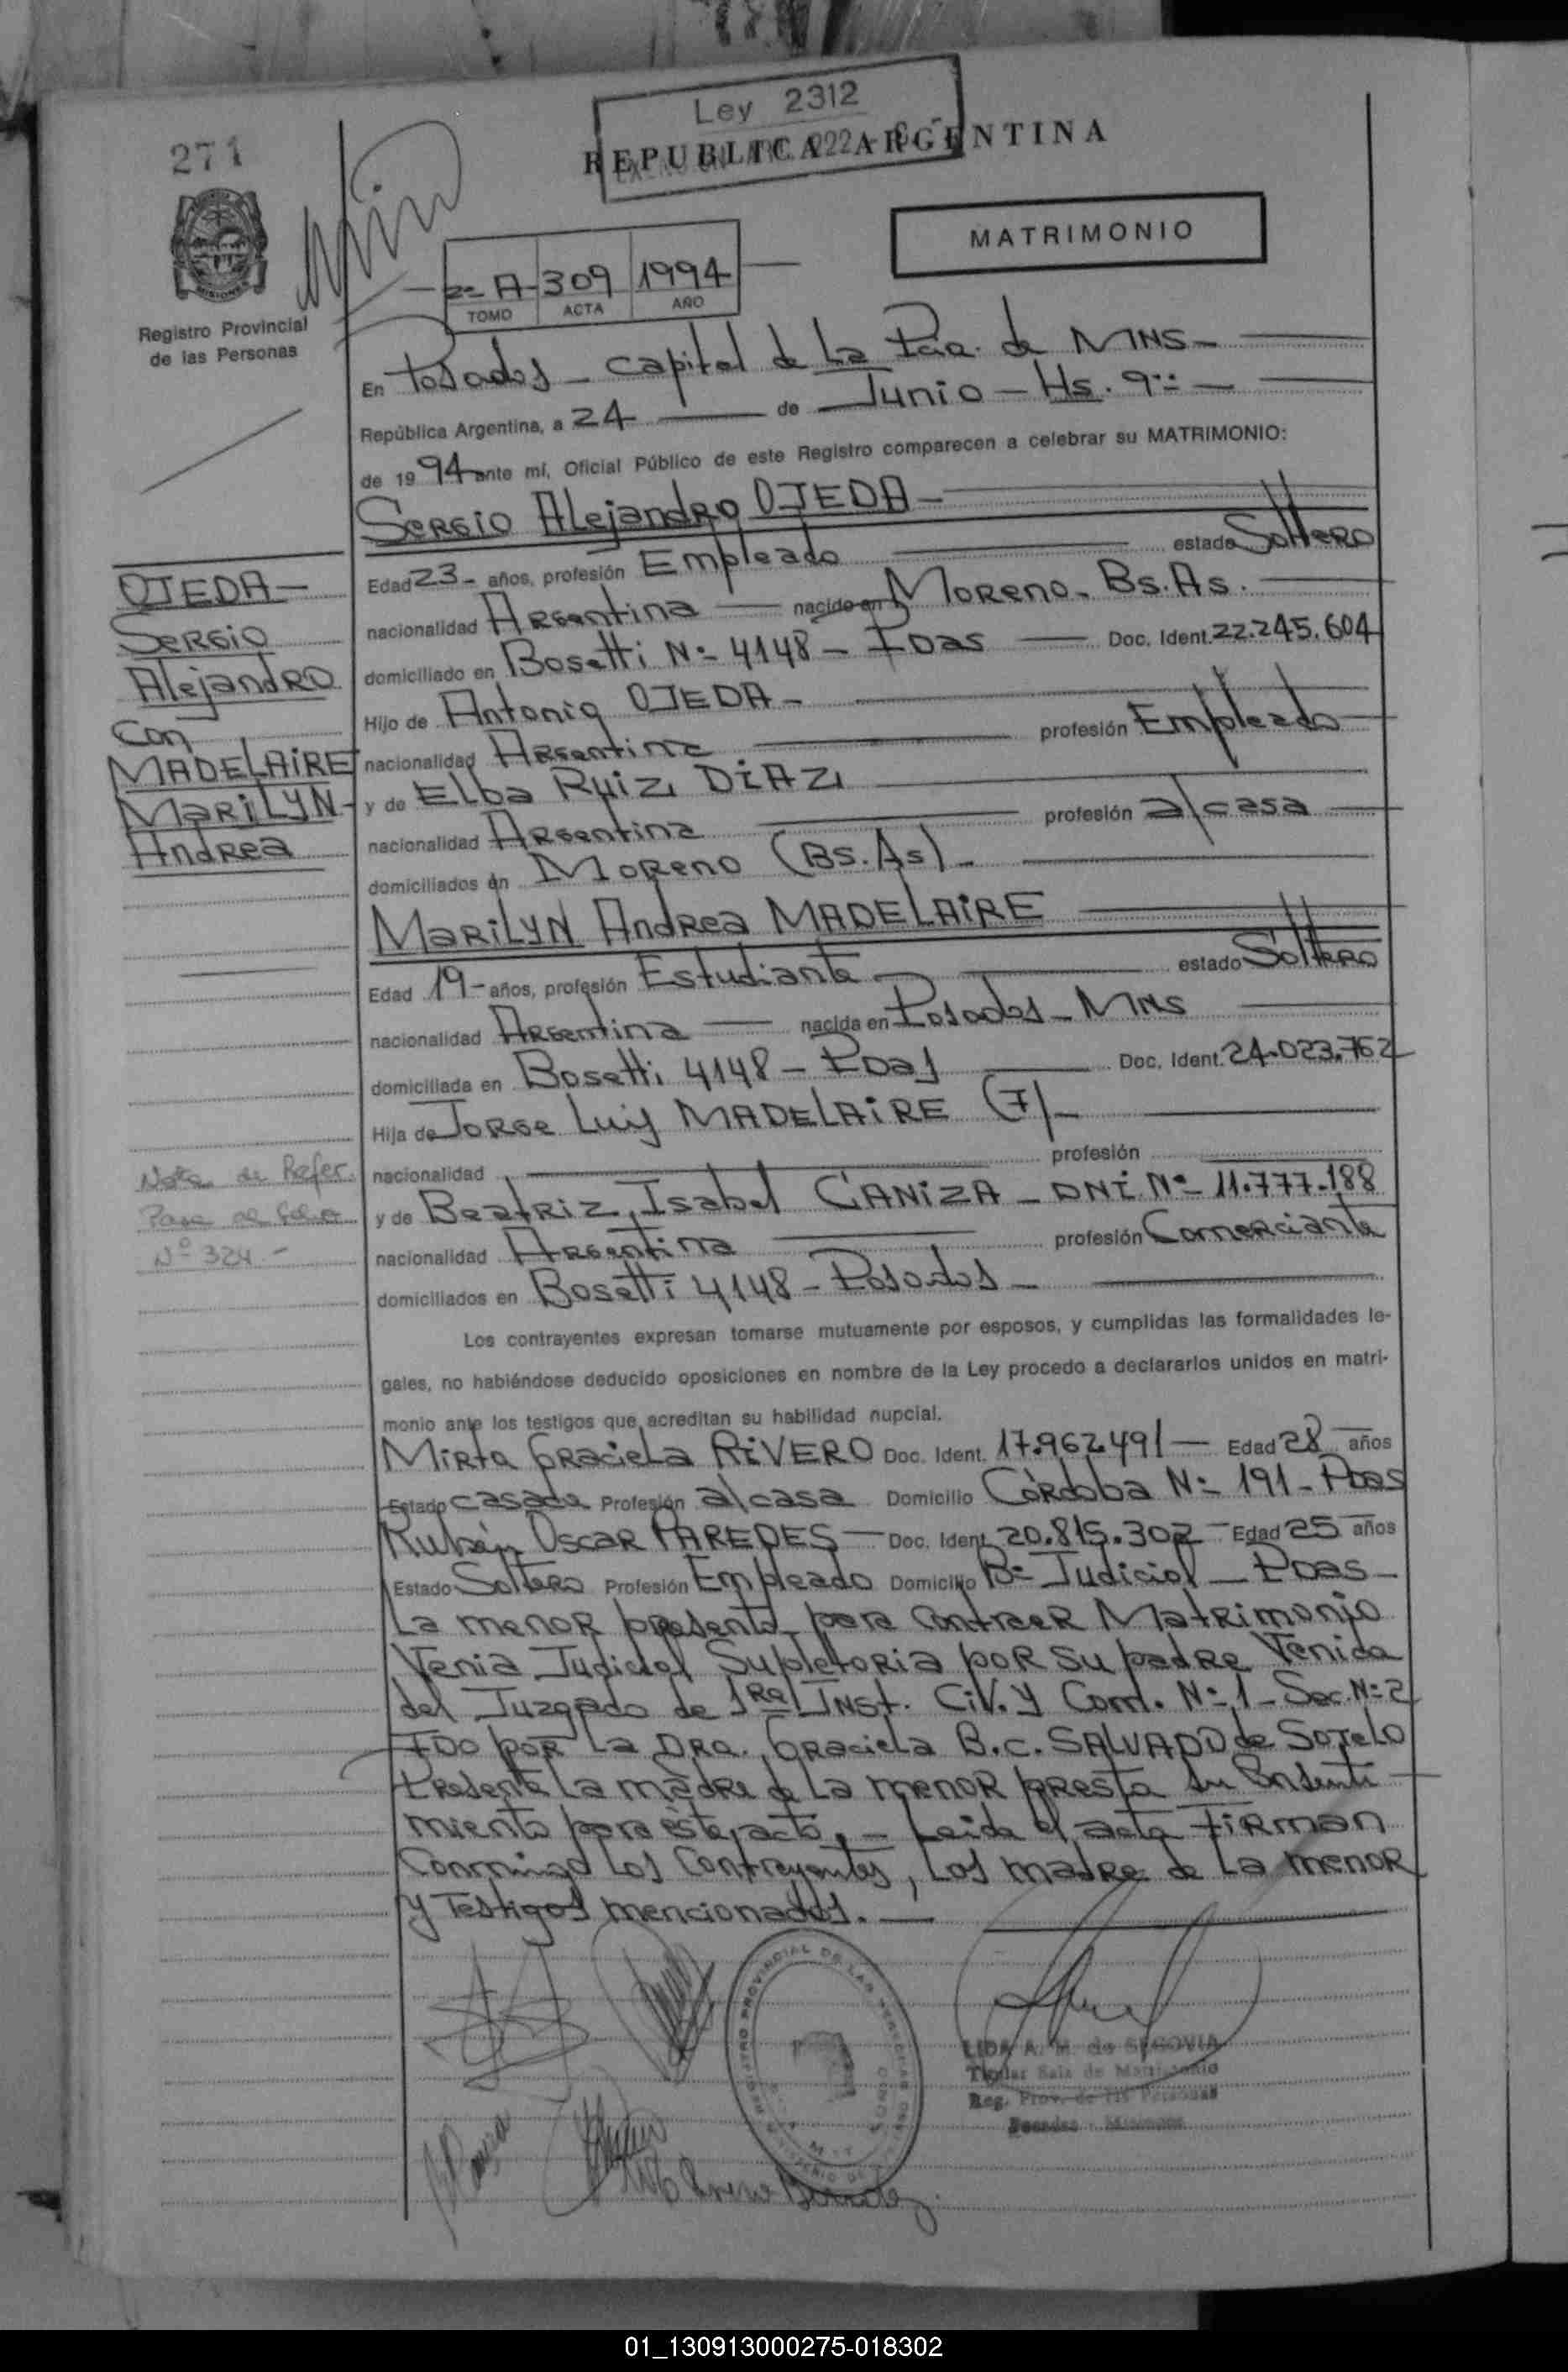 271
Ley 2312
REPUBLICA ARGENTINA
MATRIMONIO
MISIONES
Registro Provincial
de las Personas
2º A - 309 1994
TOMO ACTA AÑO
En Posadas - Capital de La Pcia. de MNS -
República Argentina, a 24 de Junio - Hs. 9
de 19 94 ante mí, Oficial Público de este Registro comparecen a celebrar su MATRIMONIO:
Sergio Alejandro OJEDA -
Edad 23 - años, profesión Empleado estado Soltero
nacionalidad Argentina nacido en Moreno - Bs. As.
domiciliado en Bosetti Nº 4148 - Pdas Doc. Ident. 22.245.604
Hijo de Antonio OJEDA -
nacionalidad Argentina profesión Empleado
y de Elba Ruiz DIAZ
nacionalidad Argentina profesión a/casa
domiciliados en Moreno (Bs. As) -
Marilyn Andrea MADELAIRE
Edad 19 - años, profesión Estudiante estado Soltero
nacionalidad Argentina nacida en Posadas - MNS
domiciliada en Bosetti 4148 - Pdas Doc. Ident. 24.023.762
Hija de Jorge Luis MADELAIRE (F) -
nacionalidad profesión
y de Beatriz Isabel CANIZA - DNI Nº 11.777.188
nacionalidad Argentina profesión Comerciante
domiciliados en Bosetti 4148 - Posadas -
Los contrayentes expresan tomarse mutuamente por esposos, y cumplidas las formalidades le-
gales, no habiéndose deducido oposiciones en nombre de la Ley procedo a declararlos unidos en matri-
monio ante los testigos que acreditan su habilidad nupcial.
Mirta Graciela RIVERO Doc. Ident. 17.962.491 - Edad 28 años
Estado casada Profesión a/casa Domicilio Córdoba Nº 191 - Pdas
Rubén Oscar PAREDES - Doc. Ident. 20.815.302 - Edad 25 años
Estado Soltero Profesión Empleado Domicilio Bº Judicial - Pdas -
La menor presenta para contraer Matrimonio
Venia Judicial Supletoria por su padre Venida
del Juzgado de 1Ra Inst. Civ. y Com. Nº 1 - Sec. Nº 2
FDO por La DRA. Graciela B. C. SALVADO de Sotelo
Presente La madre de La menor presta su Consenti
miento para éste acto. - Leida el acta Firman
Conmigo Los Contrayentes, Los madre de La menor
y Testigos mencionados. -
OJEDA -
Sergio
Alejandro
Con
MADELAIRE
Marilyn -
Andrea
Nota de Refer.
Pasa al folio
Nº 324 -
REGISTRO PROVINCIAL DE LAS PERSONAS
LIDA A. M. de SEGOVIA
Titular Sala de Matrimonio
Reg. Prov. de las Personas
Posadas - Misiones
01_130913000275-018302